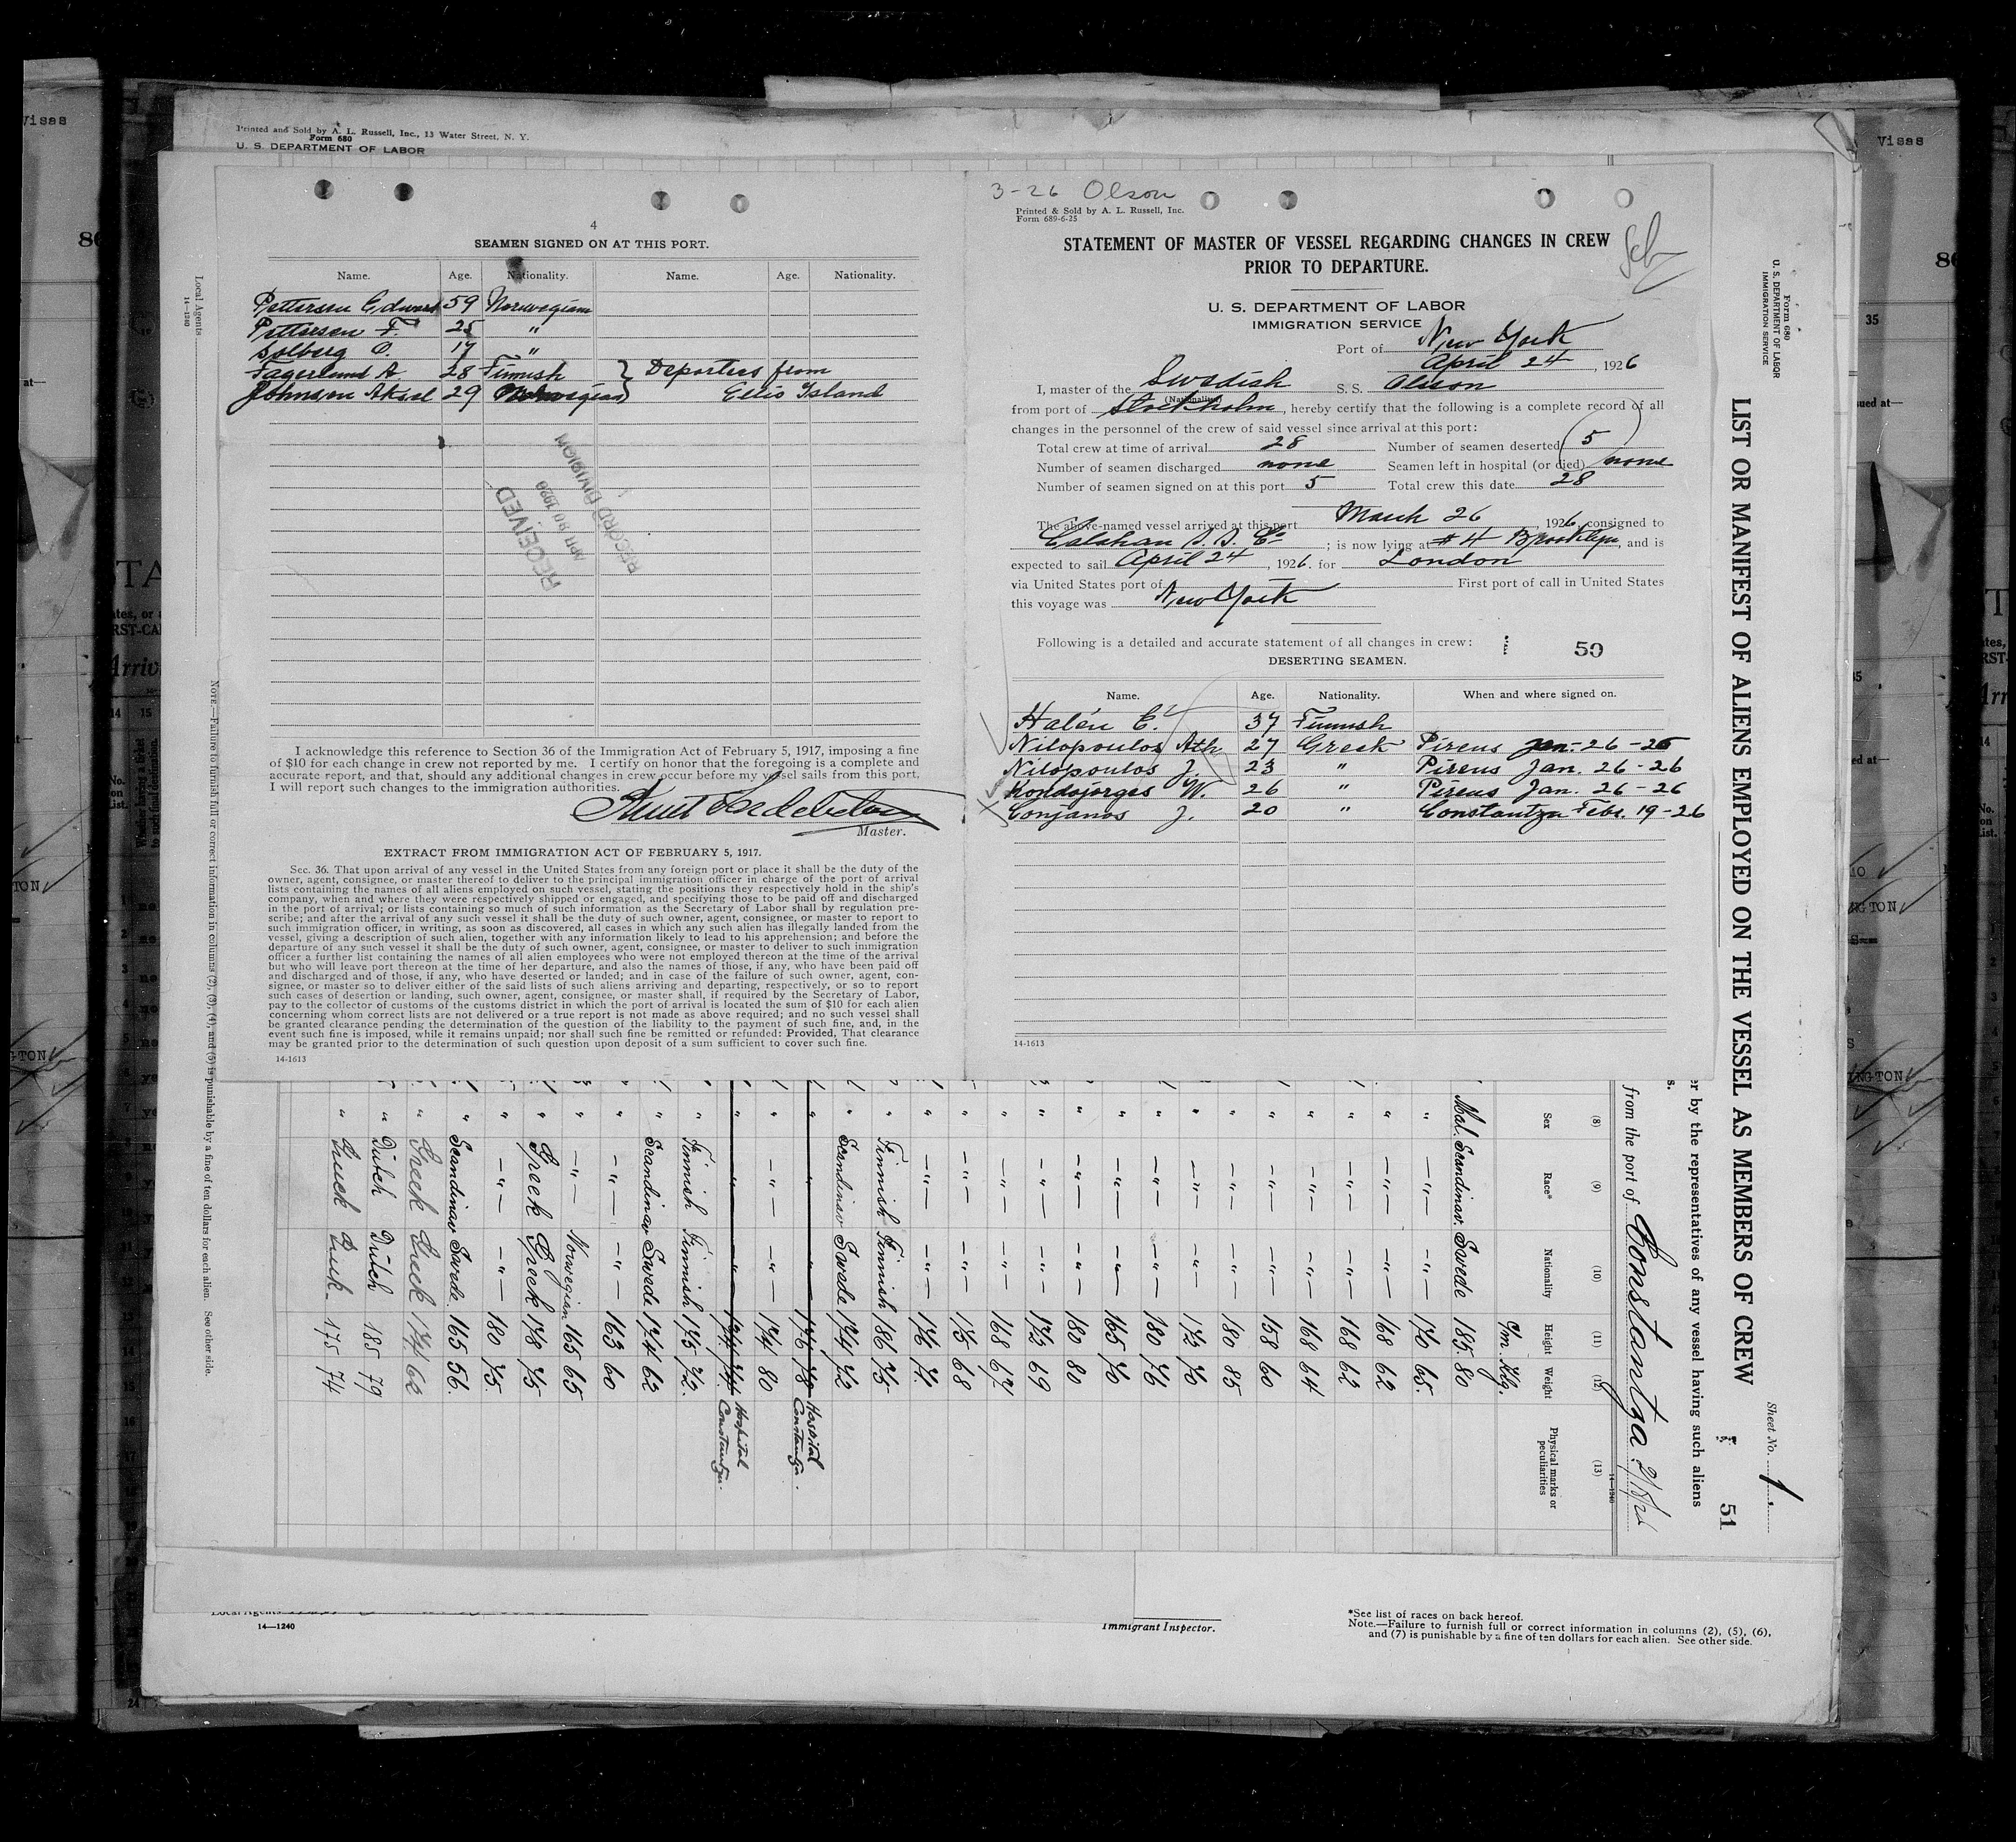 Visas
Visas
Printed and Sold by A. L. Russell, Inc., 13 Water Street, N. Y.
Form 680
U. S. DEPARTMENT OF LABOR
4
SEAMEN SIGNED ON AT THIS PORT.
Name. Age. Nationality. Name. Age. Nationality.
Pettersen Edward 59 Norwegian
Pettersen F. 25 "
Solberg O. 17 "
Fagerlund A 28 Finnish } Deporties from
Johnson Aksel 29 Norwegian } Ellis Island
RECEIVED
APR 30 1926
RECORD DIVISION
I acknowledge this reference to Section 36 of the Immigration Act of February 5, 1917, imposing a fine
of $10 for each change in crew not reported by me. I certify on honor that the foregoing is a complete and
accurate report, and that, should any additional changes in crew occur before my vessel sails from this port,
I will report such changes to the immigration authorities.
Master.
EXTRACT FROM IMMIGRATION ACT OF FEBRUARY 5, 1917.
Sec. 36. That upon arrival of any vessel in the United States from any foreign port or place it shall be the duty of the
owner, agent, consignee, or master thereof to deliver to the principal immigration officer in charge of the port of arrival
lists containing the names of all aliens employed on such vessel, stating the positions they respectively hold in the ship's
company, when and where they were respectively shipped or engaged, and specifying those to be paid off and discharged
in the port of arrival; or lists containing so much of such information as the Secretary of Labor shall by regulation pre-
scribe; and after the arrival of any such vessel it shall be the duty of such owner, agent, consignee, or master to report to
such immigration officer, in writing, as soon as discovered, all cases in which any such alien has illegally landed from the
vessel, giving a description of such alien, together with any information likely to lead to his apprehension; and before the
departure of any such vessel it shall be the duty of such owner, agent, consignee, or master to deliver to such immigration
officer a further list containing the names of all alien employees who were not employed thereon at the time of the arrival
but who will leave port thereon at the time of her departure, and also the names of those, if any, who have been paid off
and discharged and of those, if any, who have deserted or landed; and in case of the failure of such owner, agent, con-
signee, or master so to deliver either of the said lists of such aliens arriving and departing, respectively, or so to report
such cases of desertion or landing, such owner, agent, consignee, or master shall, if required by the Secretary of Labor,
pay to the collector of customs of the customs district in which the port of arrival is located the sum of $10 for each alien
concerning whom correct lists are not delivered or a true report is not made as above required; and no such vessel shall
be granted clearance pending the determination of the question of the liability to the payment of such fine, and, in the
event such fine is imposed, while it remains unpaid; nor shall such fine be remitted or refunded: Provided, That clearance
may be granted prior to the determination of such question upon deposit of a sum sufficient to cover such fine.
14-1613
3-26 Olson
Printed & Sold by A. L. Russell, Inc.
Form 689-6-25
STATEMENT OF MASTER OF VESSEL REGARDING CHANGES IN CREW
PRIOR TO DEPARTURE.
U. S. DEPARTMENT OF LABOR
IMMIGRATION SERVICE
Port of New York
April 24, 1926
I, master of the Swedish S. S. Olsson
(Nationality)
from port of Stockholm, hereby certify that the following is a complete record of all
changes in the personnel of the crew of said vessel since arrival at this port:
Total crew at time of arrival 28 Number of seamen deserted 5
Number of seamen discharged none Seamen left in hospital (or died) none
Number of seamen signed on at this port 5 Total crew this date 28
The above-named vessel arrived at this port March 26, 1926, consigned to
Calahan S. S. Co; is now lying at #4 Brooklyn, and is
expected to sail April 24, 1926. for London
via United States port of First port of call in United States
this voyage was New York
Following is a detailed and accurate statement of all changes in crew: 50
DESERTING SEAMEN.
Name. Age. Nationality. When and where signed on.
Halén E. 37 Finnish
Nilopoulos Ath 27 Greek Pireus Jan. 26-26
Nilopoulos J. 23 " Pireus Jan. 26-26
Kondojorges W. 26 " Pireus Jan. 26-26
Conjanos J. 20 " Constantza Febr. 19-26
14-1613
Form 680
U. S. DEPARTMENT OF LABOR
IMMIGRATION SERVICE
LIST OR MANIFEST OF ALIENS EMPLOYED ON THE VESSEL AS MEMBERS OF CREW
Sheet No. 1
51
er by the representatives of any vessel having such aliens
from the port of Constantza
14-1240
(8) (9) (10) (11) (12) (13)
Sex Race* Nationality Height Weight Physical marks or peculiarities
C/m. Klg.
Mal. Scandinav. Swede 185 80
" —"— —"— 170 65
" —"— —"— 168 62
" —"— —"— 168 62
" —"— —"— 168 64
" —"— —"— 158 60
" —"— —"— 180 85
" —"— —"— 173 70
" —"— —"— 180 76
" —"— —"— 165 70
" —"— —"— 180 80
" —"— —"— 173 69
" —"— —"— 168 67
" —"— —"— 175 68
" —"— —"— 176 74
" Finnish Finnish 186 75
" Scandinav Swede 174 72
" " " 176 78 Hospital Constantza.
" —"— —"— 174 80
" " " 174 74 Hospital Constantza.
" Finnish Finnish 175 72
" Scandinav Swede 174 62
" —"— —"— 163 60
" —"— Norwegian 165 65
" Greek Greek 178 75
" —"— —"— 180 75
" Scandinav Swede 165 56
" Greek Greek 174 62
" Dutch Dutch 185 79
" Greek Greek 175 74
Local Agents
14-1240
NOTE.—Failure to furnish full or correct information in columns (2), (3), (4), and (5) is punishable by a fine of ten dollars for each alien. See other side.
Local Agents
14—1240
Immigrant Inspector.
*See list of races on back hereof.
Note.—Failure to furnish full or correct information in columns (2), (5), (6),
and (7) is punishable by a fine of ten dollars for each alien. See other side.